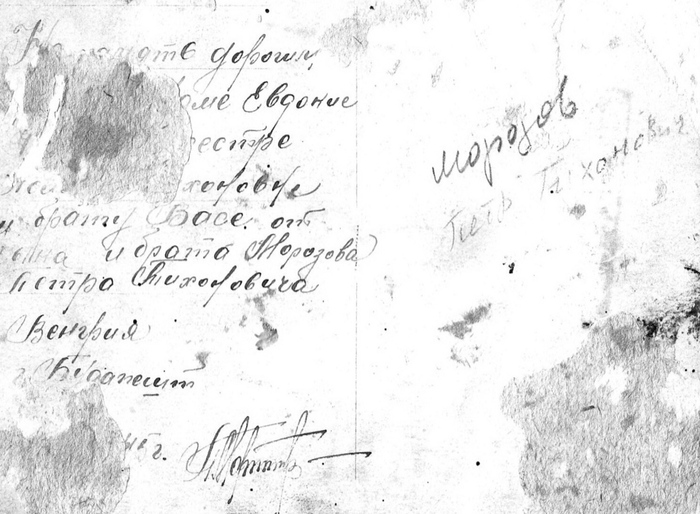 На память дорогим
маме Евдокие
сестре
Тихоновне
и брату Васе. от
сына и брата Морозова
Петра Тихоновича
Венгрия
г. Будапешт
45 г.
Морозов
Петр Тиханович